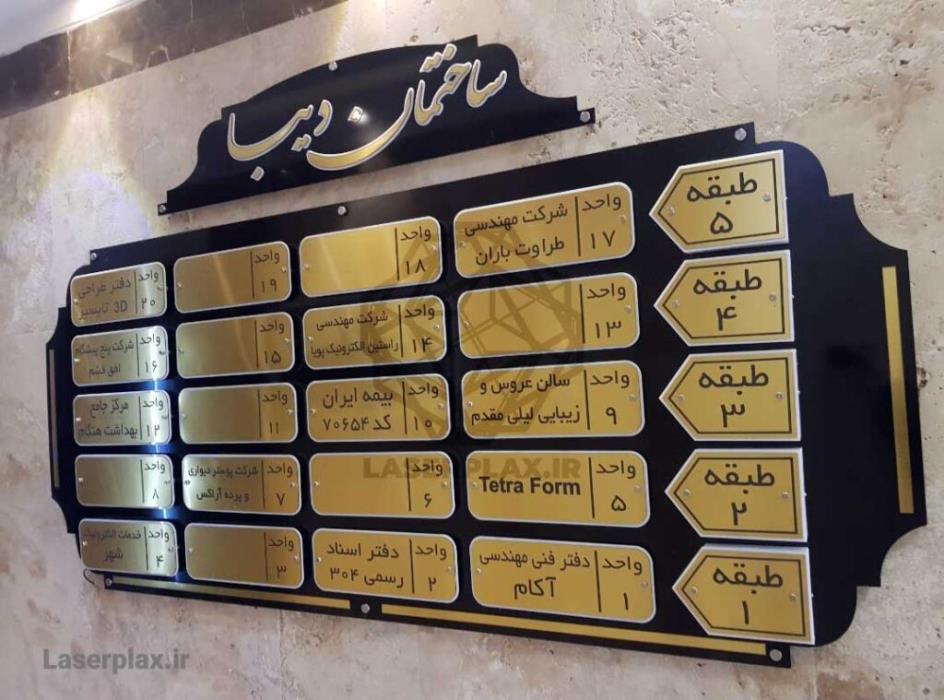 ساختمان دیبا
طبقه
۵
واحد
۱۷
شرکت مهندسی
طراوت باران
واحد
۱۸
واحد
۱۹
واحد
۲۰
دفتر طراحی
3D
طبقه
۴
واحد
۱۳
واحد
۱۴
شرکت مهندسی
راستین الکترونیک پویا
واحد
۱۵
واحد
۱۶
شرکت پنج پیشگام
افق قشم
طبقه
۳
واحد
۹
سالن عروس و
زیبایی لیلی مقدم
واحد
۱۰
بیمه ایران
کد ۷۰۶۵۴
واحد
۱۱
واحد
۱۲
مرکز جامع
بهداشت هنگام
طبقه
۲
واحد
۵
Tetra Form
واحد
۶
واحد
۷
شرکت پوستر دیواری
و پرده آراکس
واحد
۸
طبقه
۱
واحد
۱
دفتر فنی مهندسی
آکام
واحد
۲
دفتر اسناد
رسمی ۳۰۴
واحد
۳
واحد
۴
خدمات الکترونیک
شهر
LASERPLAX.IR
Laserplax.ir